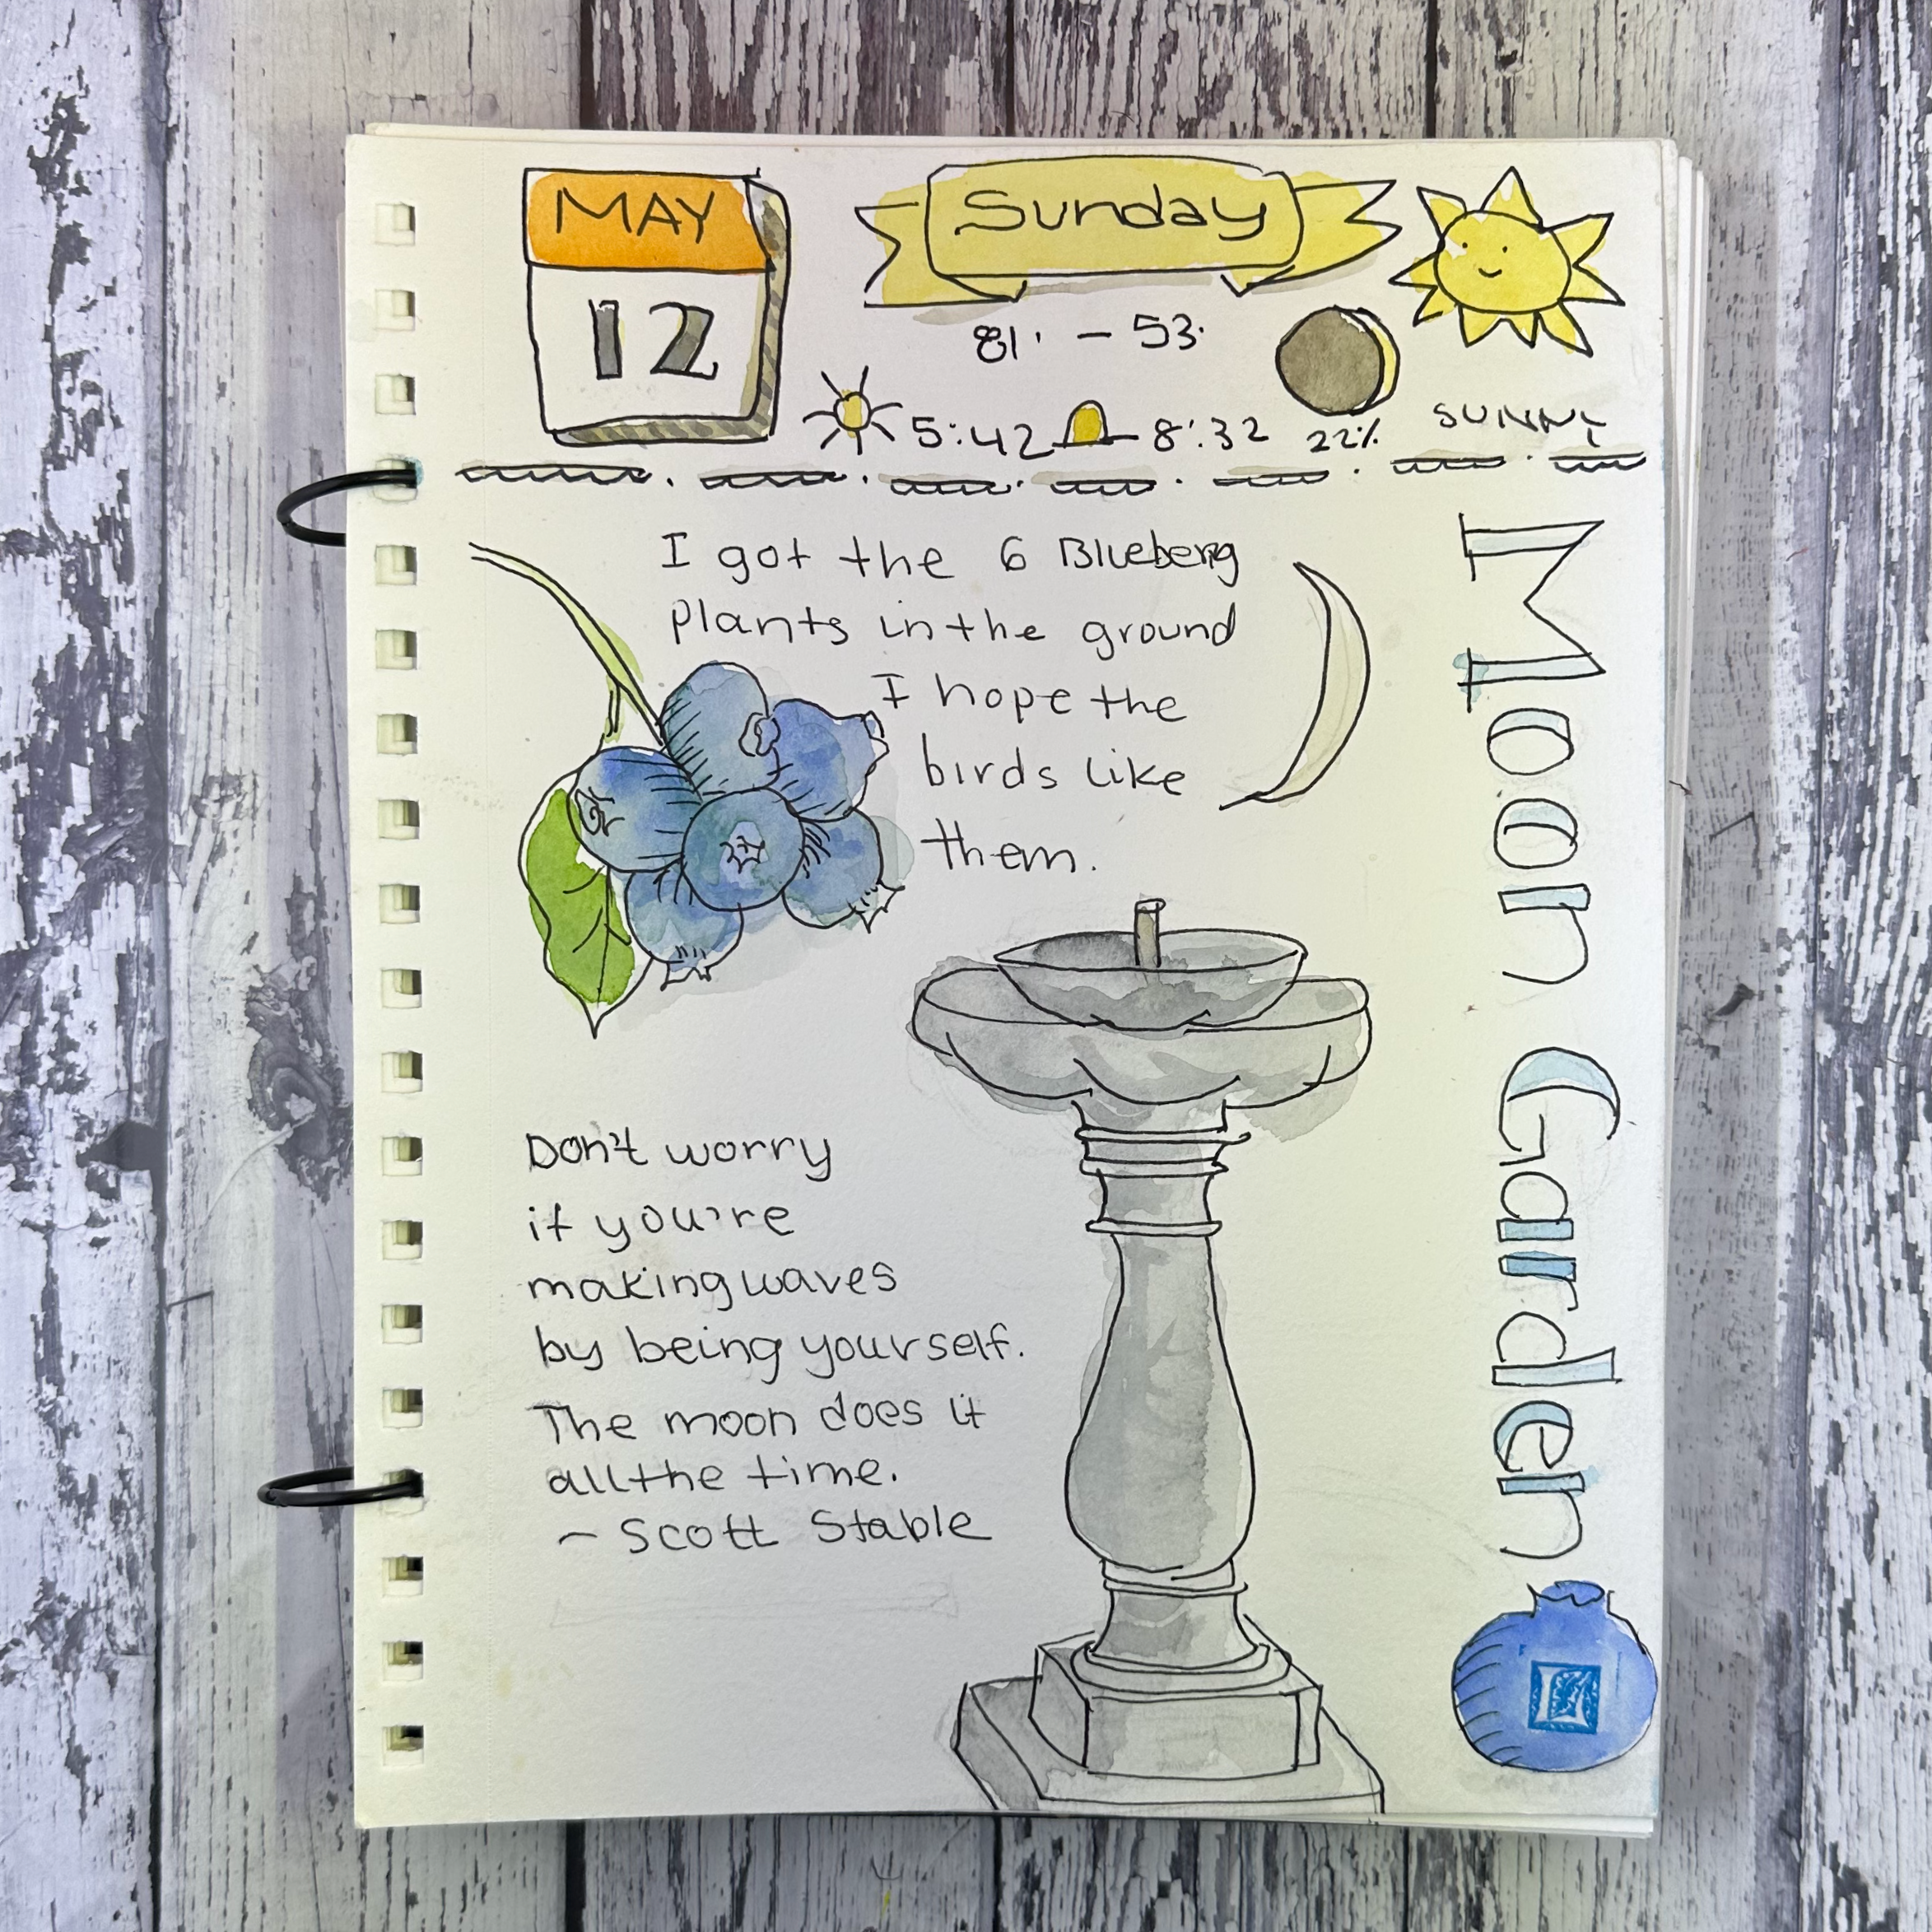 MAY
12
Sunday
81° - 53°
5:42 8:32 22% SUNNY
I got the 6 Blueberry
plants in the ground
I hope the
birds like
them.
Moon Garden
Don't worry
if you're
making waves
by being yourself.
The moon does it
all the time.
~ Scott Stable